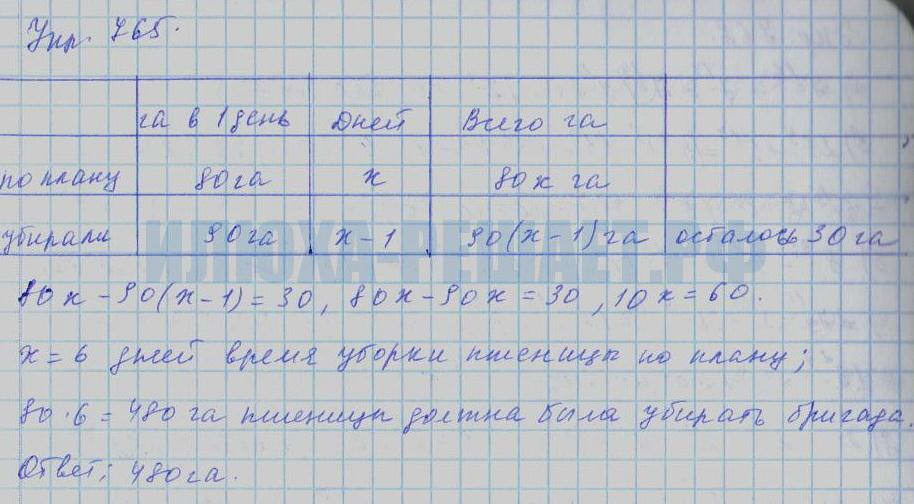 Упр. 765.
га в 1 день Дней Всего га
по плану 80 га х 80х га
убирали 90 га х-1 90(х-1) га осталось 30 га
ИЛЮХА-РЕШАЕТ.РФ
80х-90(х-1)=30, 80х-90х=30, 10х=60.
х=6 дней время уборки пшеницы по плану;
80·6=480 га пшеницы должна была убирать бригада.
Ответ: 480 га.